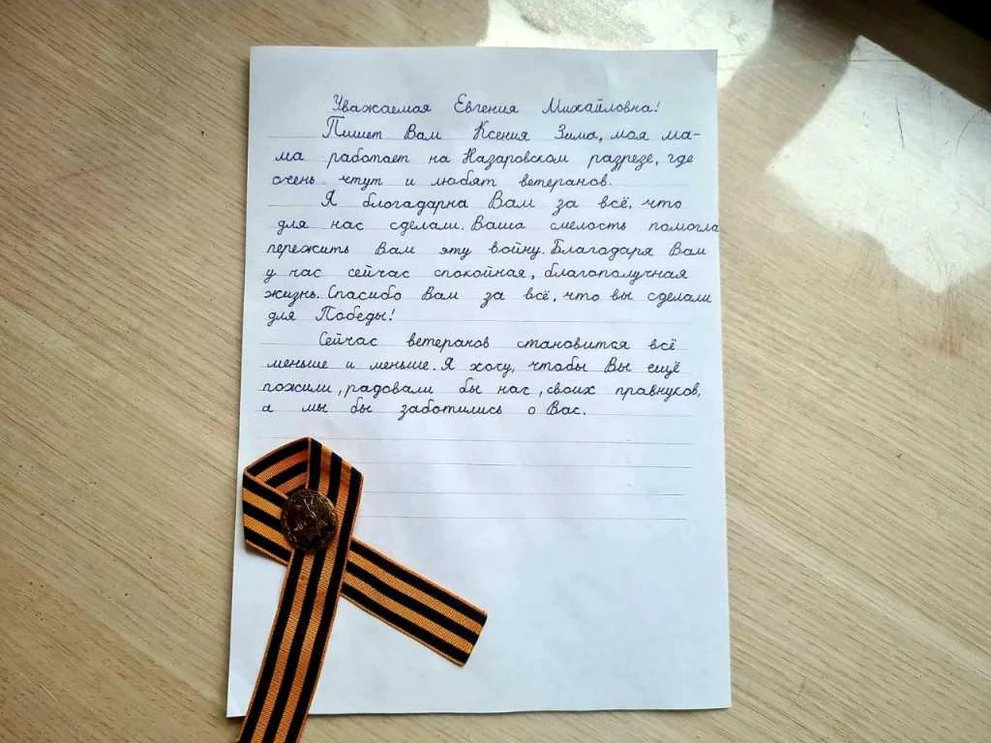 Уважаемая Евгения Михайловна!
Пишет Вам Ксения Зима, моя ма-
ма работает на Назаровском разрезе, где
очень чтут и любят ветеранов.
Я блогадарна Вам за всё, что
для нас сделали. Ваша смелость помогла
пережить Вам эту войну. Благодаря Вам
у нас сейчас спокойная, благополучная
жизнь. Спасибо Вам за всё, что вы сделали
для Победы!
Сейчас ветеранов становится всё
меньше и меньше. Я хочу, чтобы Вы ещё
пожили, радовали бы нас, своих правнуков,
а мы бы заботились о Вас.